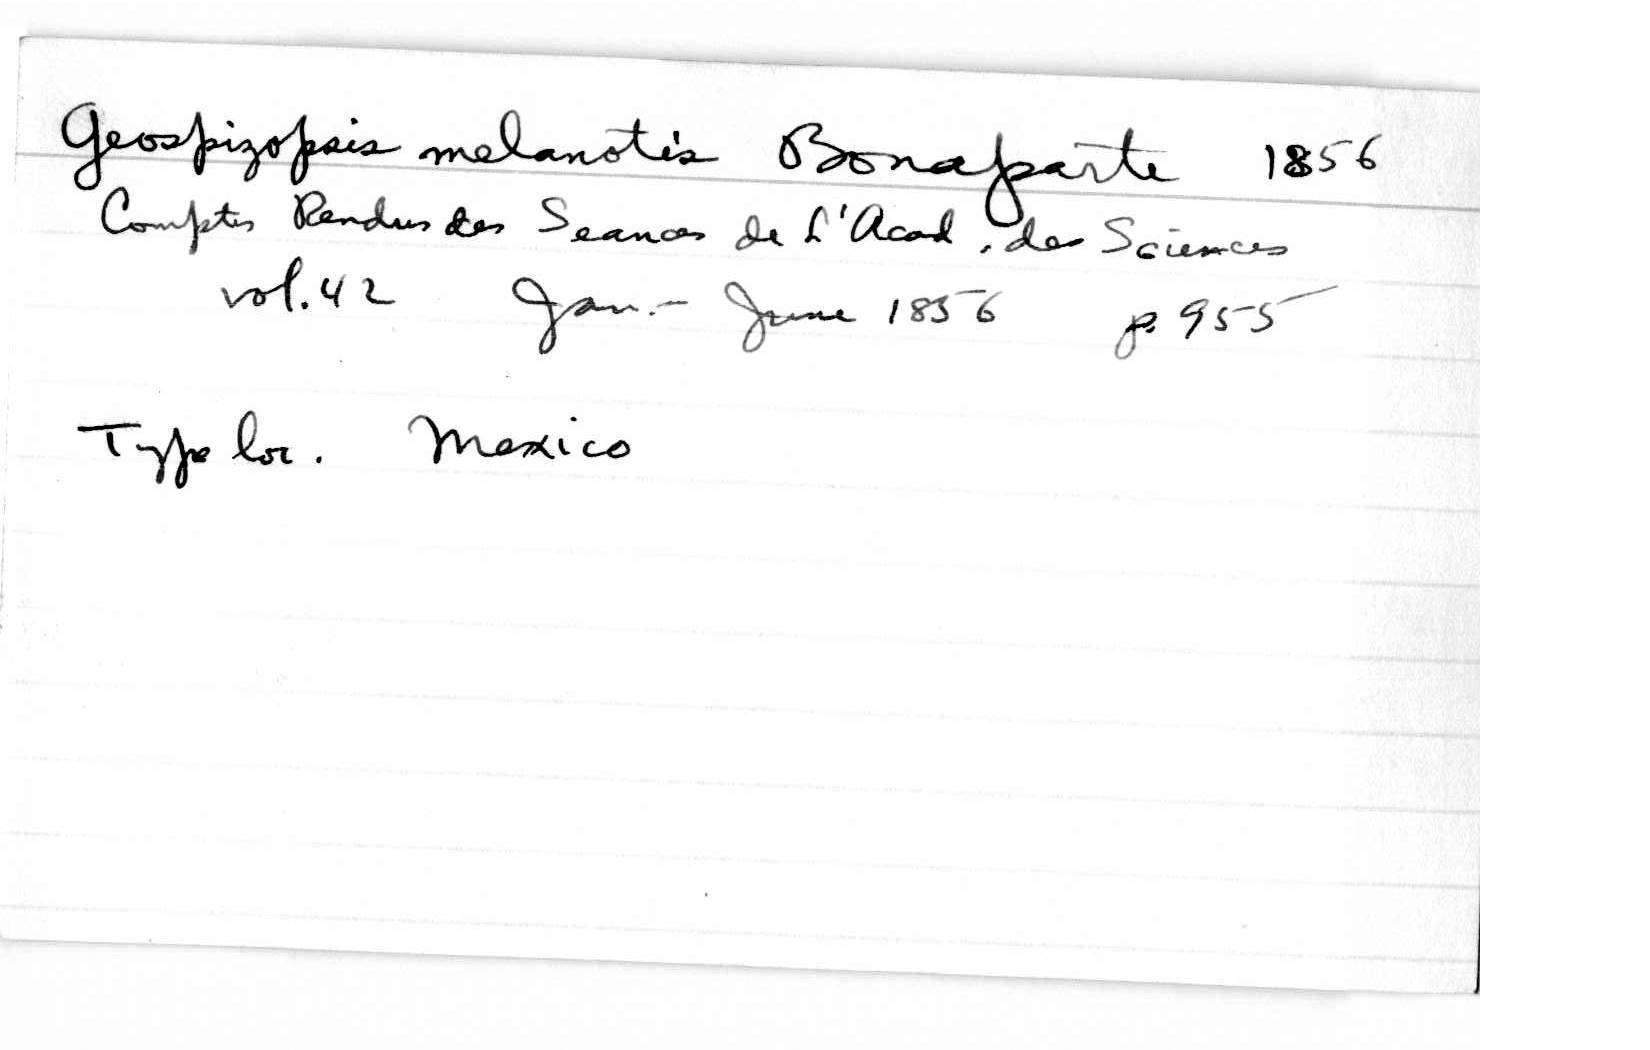 Geospizopsis melanotis Bonaparte 1856
Comptes Rendus des Seances de L'Acad. des Sciences
vol. 42 Jan. - June 1856 p. 955
Type loc. Mexico